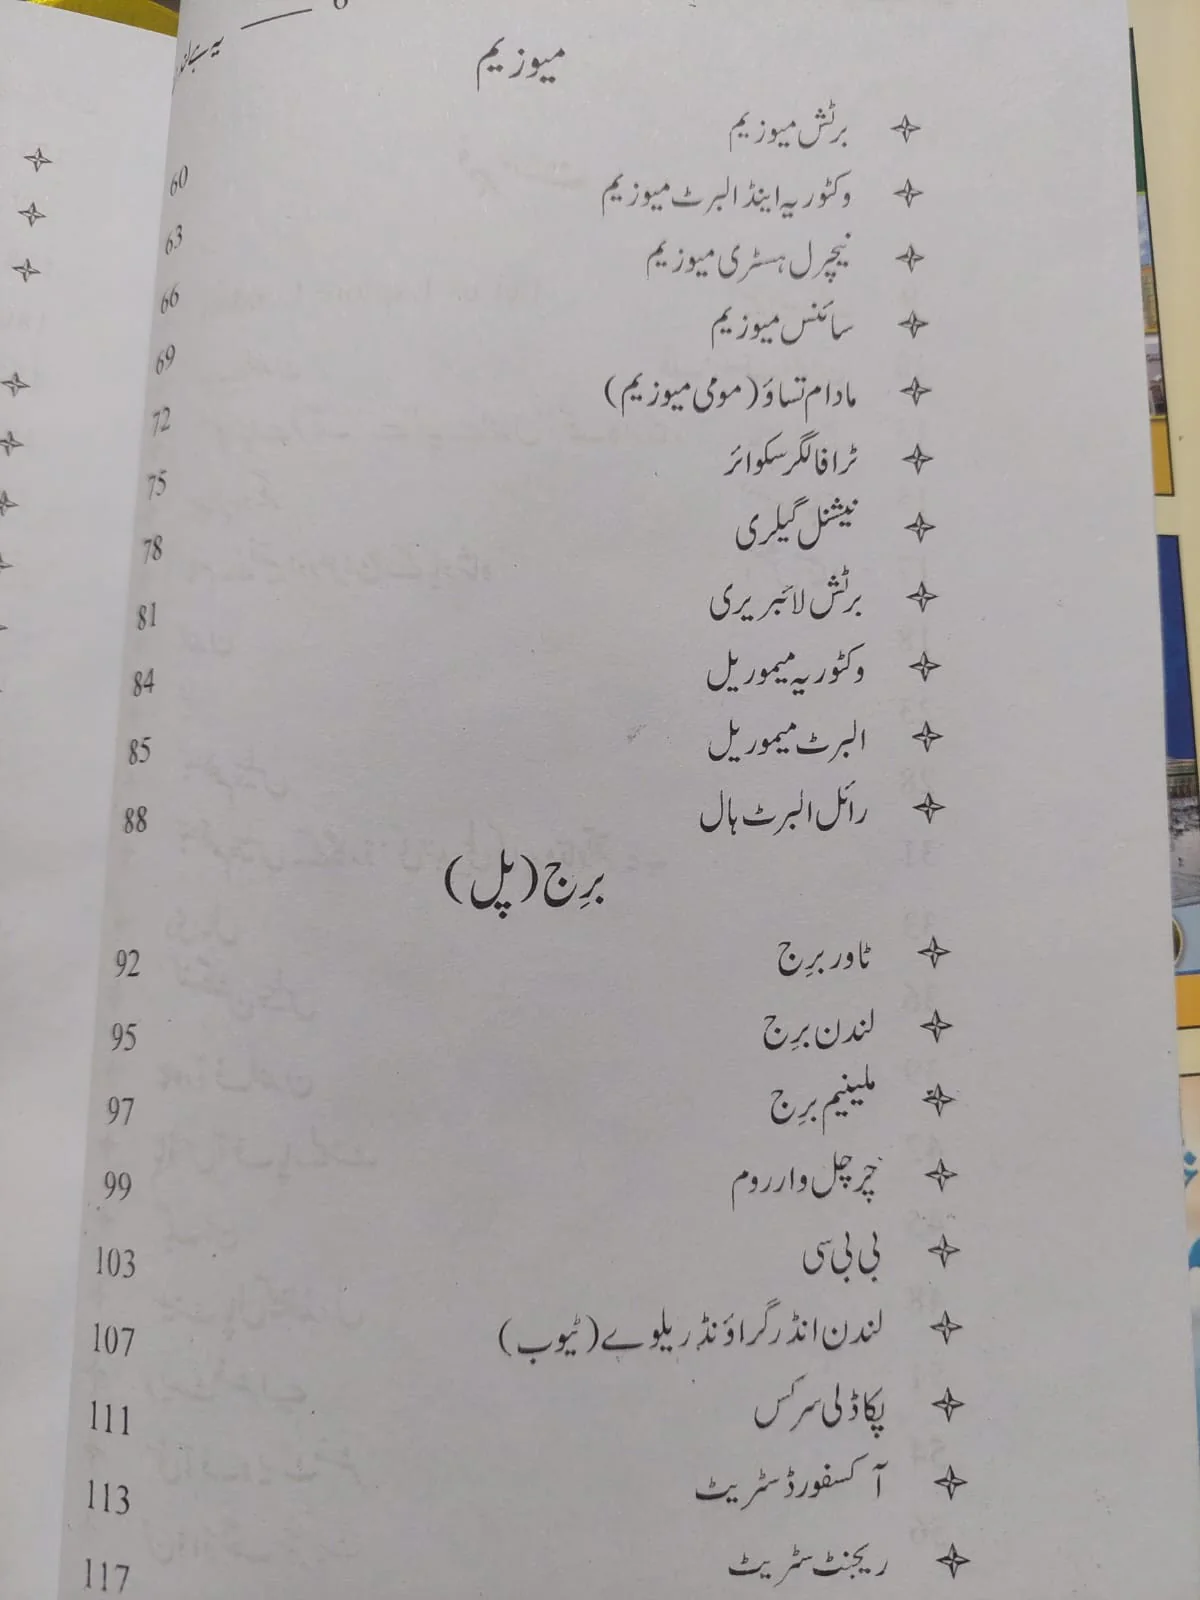 میوزیم
برٹش میوزیم 60
وکٹوریہ اینڈ البرٹ میوزیم 63
نیچرل ہسٹری میوزیم 66
سائنس میوزیم 69
مادام تساؤ (مومی میوزیم) 72
ٹرافالگر سکوائر 75
نیشنل گیلری 78
برٹش لائبریری 81
وکٹوریہ میموریل 84
البرٹ میموریل 85
رائل البرٹ ہال 88
برِج (پل)
ٹاور برِج 92
لندن برِج 95
ملینیم برِج 97
چرچل وار روم 99
بی بی سی 103
لندن انڈر گراؤنڈ ریلوے (ٹیوب) 107
پکاڈلی سرکس 111
آکسفورڈ سٹریٹ 113
ریجنٹ سٹریٹ 117